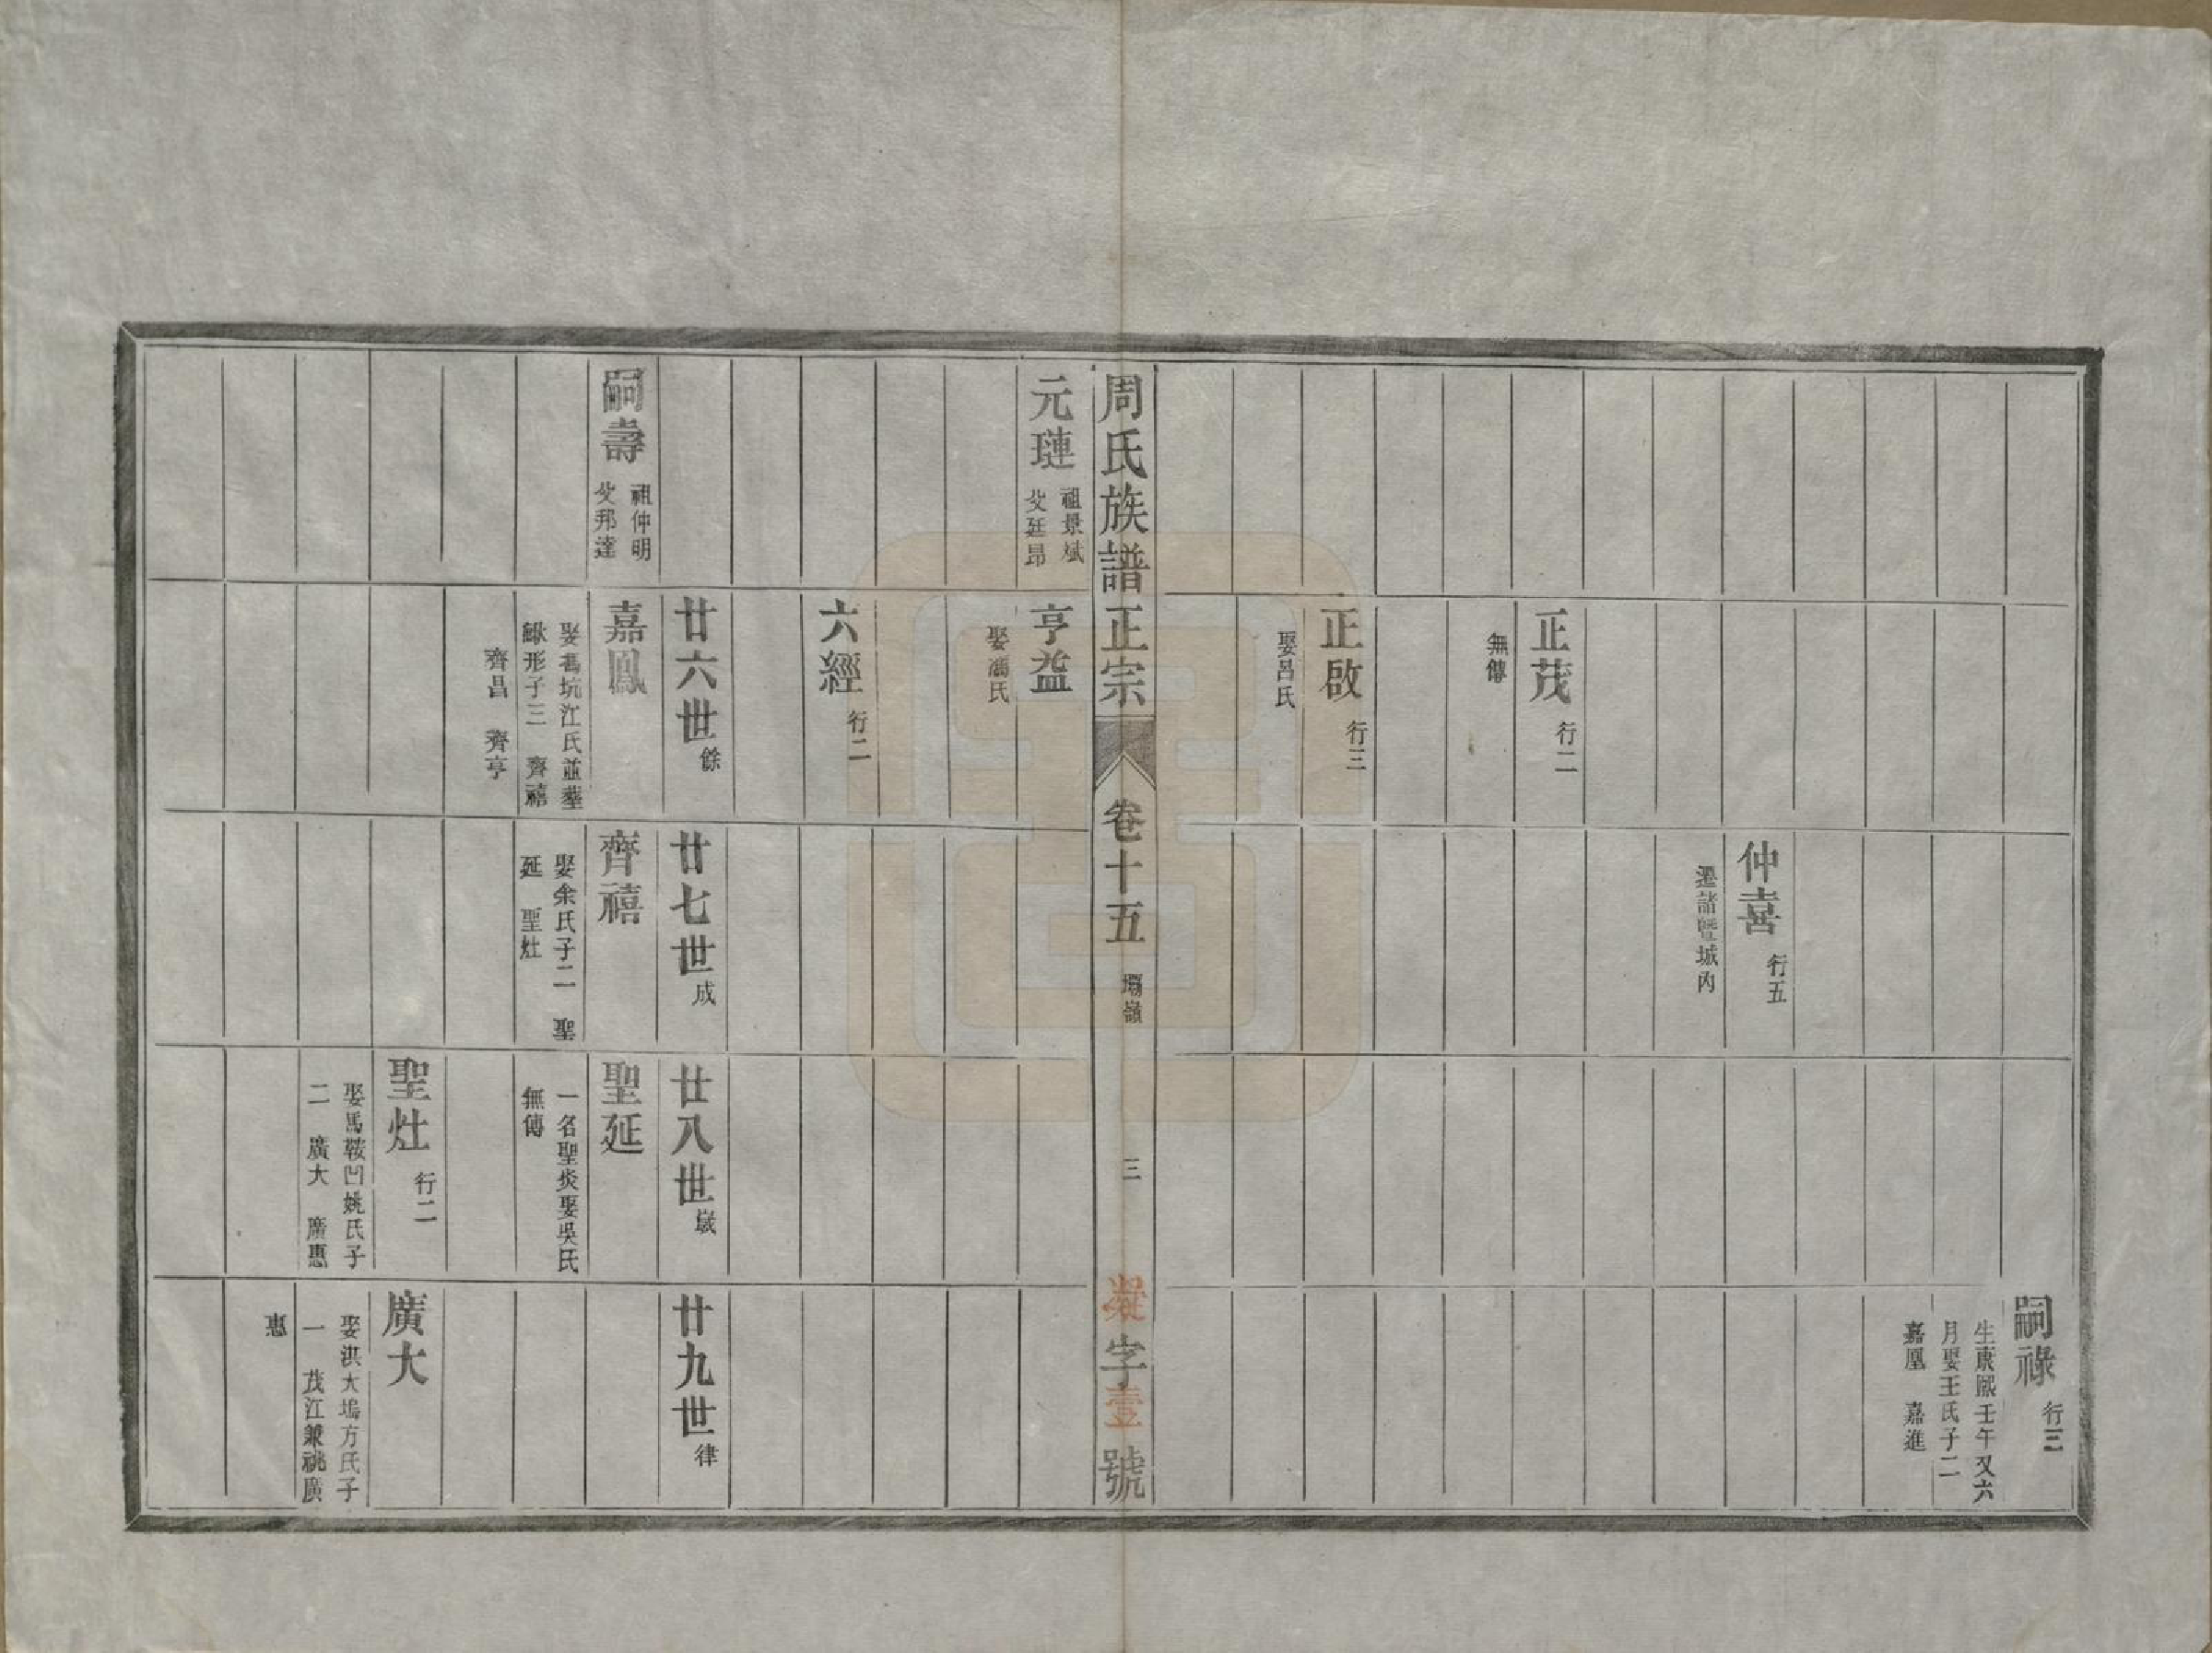 正茂 行二
無傳
正啟 行三
娶呂氏
仲喜 行五
遷諸暨城內
嗣祿 行三
生康熙壬午又六
月娶王氏子二
嘉鳳 嘉進
周氏族譜正宗 卷十五 壩嶺 三 凝字壹號
元璉 祖景斌
父廷昂
亨益
娶馮氏
六經 行二
廿六世 餘
廿七世 成
廿八世 歲
廿九世 律
嗣壽 祖仲明
父邦達
嘉鳳
娶馮坑江氏並葬
鍬形子三 齊禧
齊昌 齊亨
齊禧
娶余氏子二 聖
延 聖灶
聖延
一名聖炎娶吳氏
無傳
聖灶 行二
娶馬鞍凹姚氏子
二 廣大 廣惠
廣大
娶洪大塢方氏子
一 茂江兼祧廣
惠